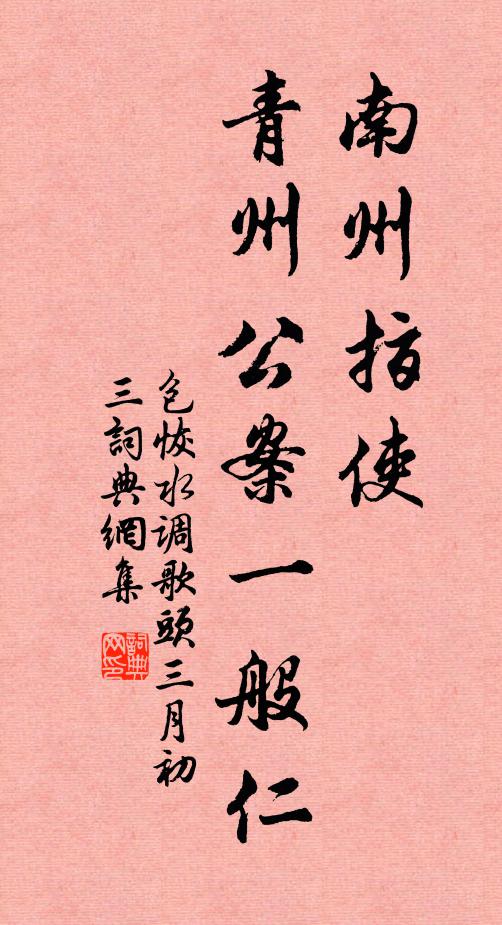 南州指使
青州公案一般仁
包恢水调歌頭三月初
三詞典網集
詞典網印